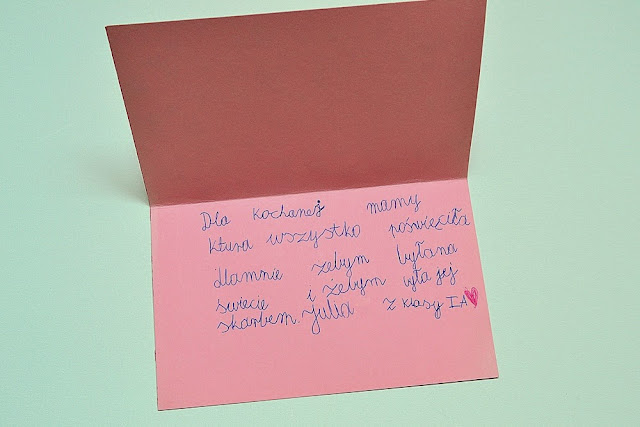 Dla kochanej mamy
ktura wszystko poświęciła
dlamnie żebym byłana
świecie i żebym była jej
skarbem. Julia z klasy IA